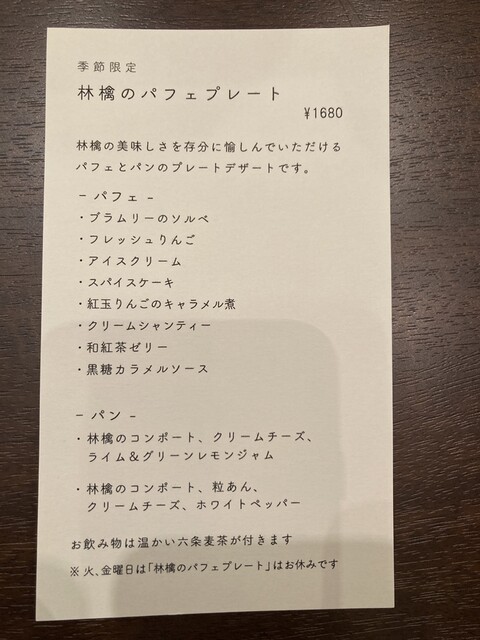 季節限定
林檎のパフェプレート
¥1680
林檎の美味しさを存分に愉しんでいただける
パフェとパンのプレートデザートです。
- パフェ -
・ブラムリーのソルベ
・フレッシュりんご
・アイスクリーム
・スパイスケーキ
・紅玉りんごのキャラメル煮
・クリームシャンティー
・和紅茶ゼリー
・黒糖カラメルソース
- パン -
・林檎のコンポート、クリームチーズ、
ライム＆グリーンレモンジャム
・林檎のコンポート、粒あん、
クリームチーズ、ホワイトペッパー
お飲み物は温かい六条麦茶が付きます
※ 火、金曜日は「林檎のパフェプレート」はお休みです